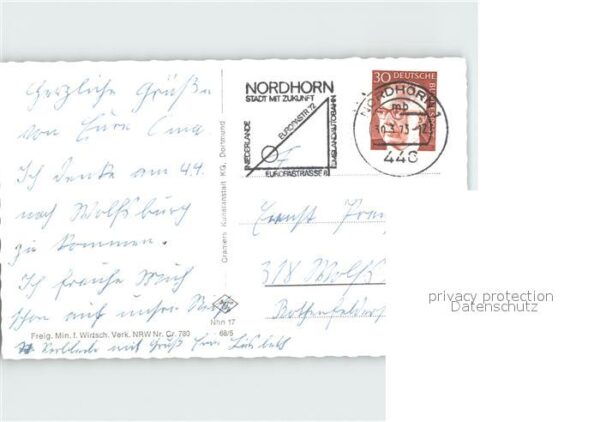 Herzliche Grüße
von Eure Oma
Ich denke am 4.4.
nach Wolfsburg
zu kommen.
Ich freuhe mich
schon auf unser
Freig. Min. f. Wirtsch. Verk. NRW Nr. Cr. 780
mit Gruß
Cramers Kunstanstalt KG, Dortmund
Nhn 17
68/5
NORDHORN
STADT MIT ZUKUNFT
NIEDERLANDE
EUROPASTR 72
EMSLANDAUTOBAHN
EUROPASTRASSE 8
30 DEUTSCHE
NORDHORN 1
mb
446
318 Wolfs
privacy protection
Datenschutz